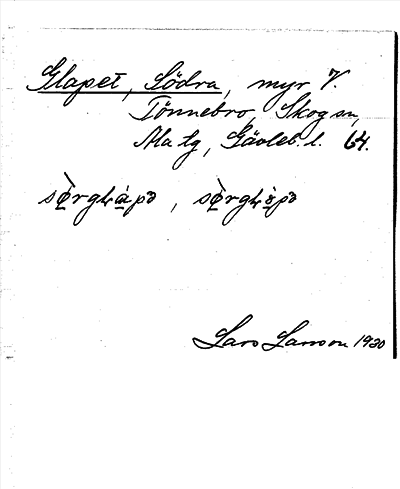 Glapet, Södra, myr V.
Tönnebro, Skog sn,
Ala tg, Gävleb. l. 64.
Lars Larsson 1930